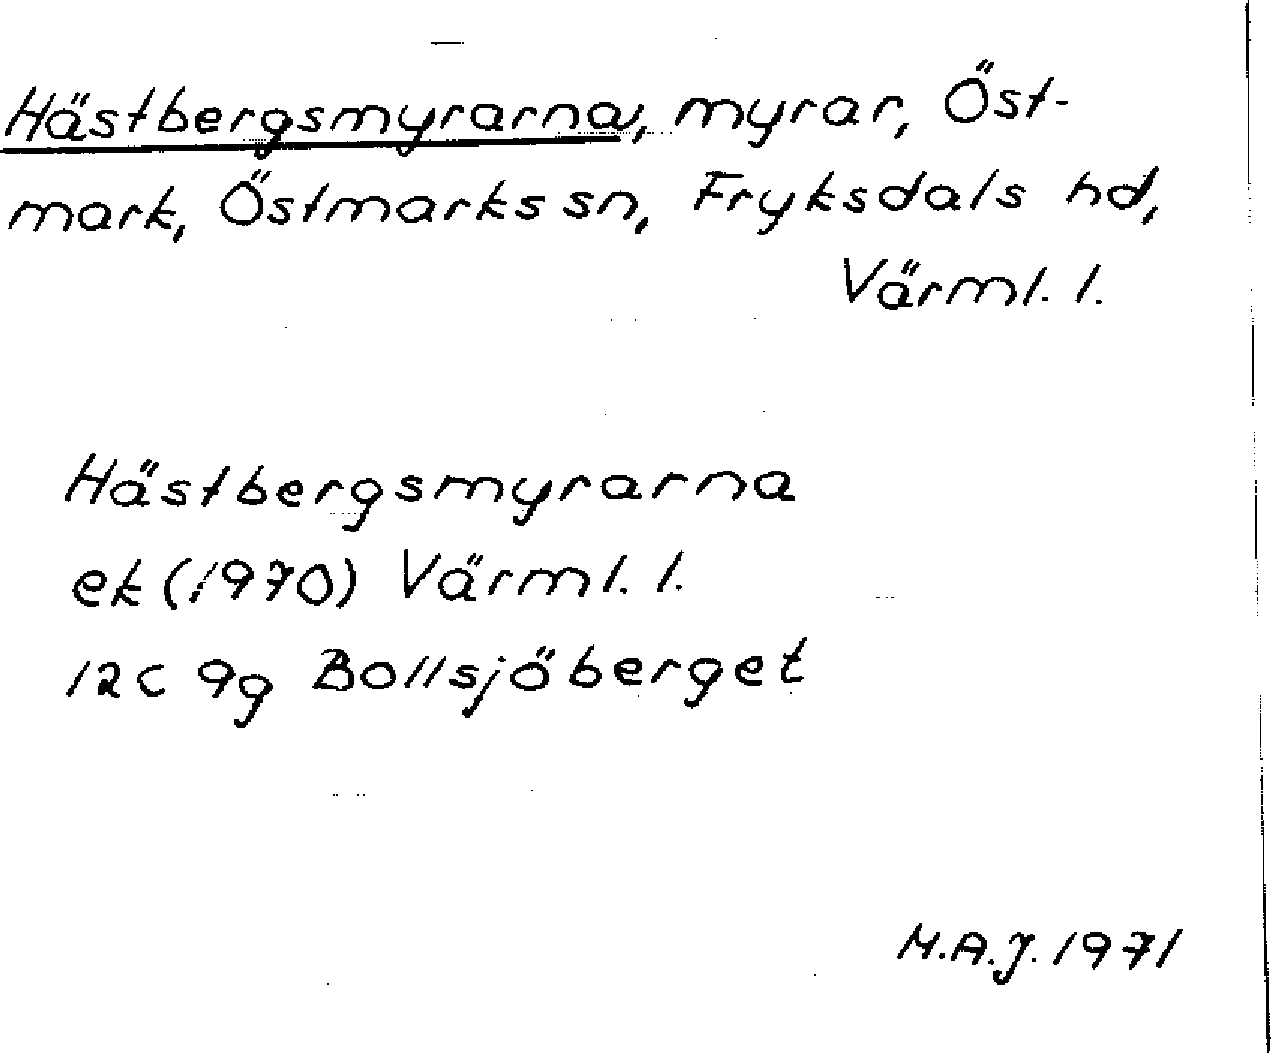 Hästbergsmyrarna, myrar, Öst-
mark, Östmarks sn, Fryksdals hd,
Värml. l.
Hästbergsmyrarna
ek (1970) Värml. l.
12c 9g Bollsjöberget
M.A.J. 1971